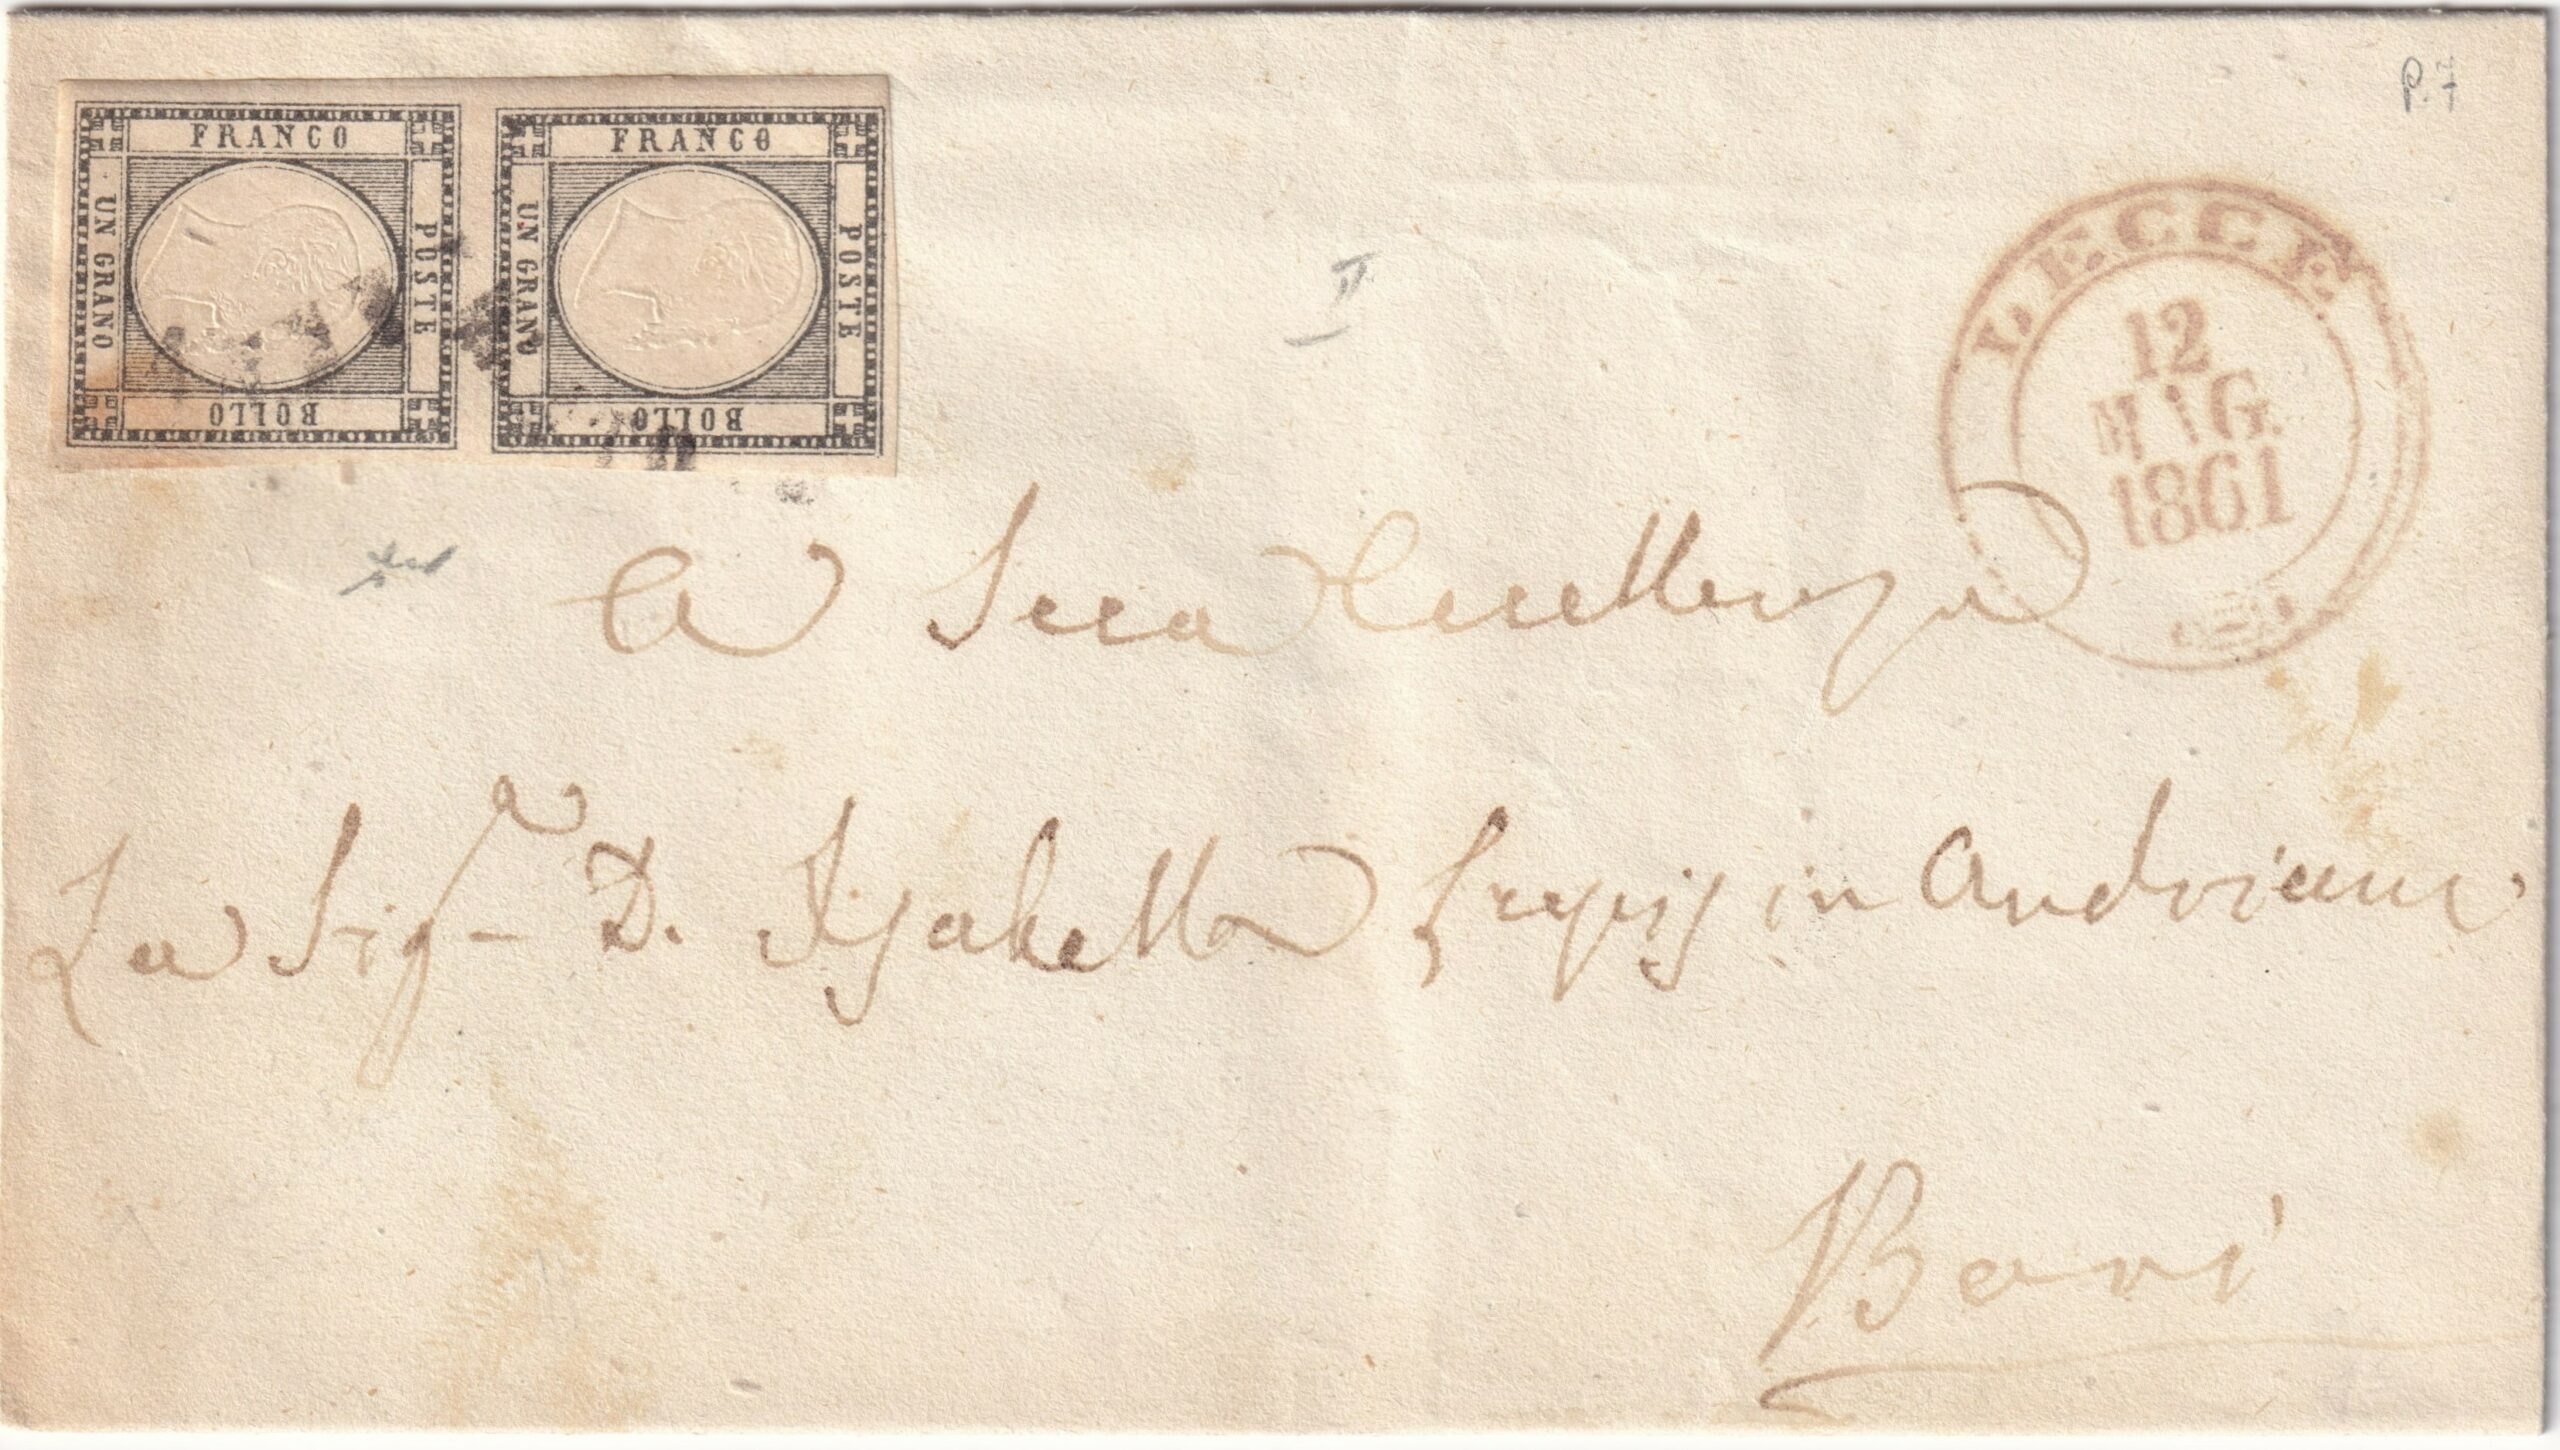 P. 7
FRANCO
POSTE
BOLLO
UN GRANO
FRANCO
POSTE
BOLLO
UN GRANO
LECCE
12
MAG.
1861
II
A Sua Eccellenza
La Sig.ª D. Isabella in
Bari